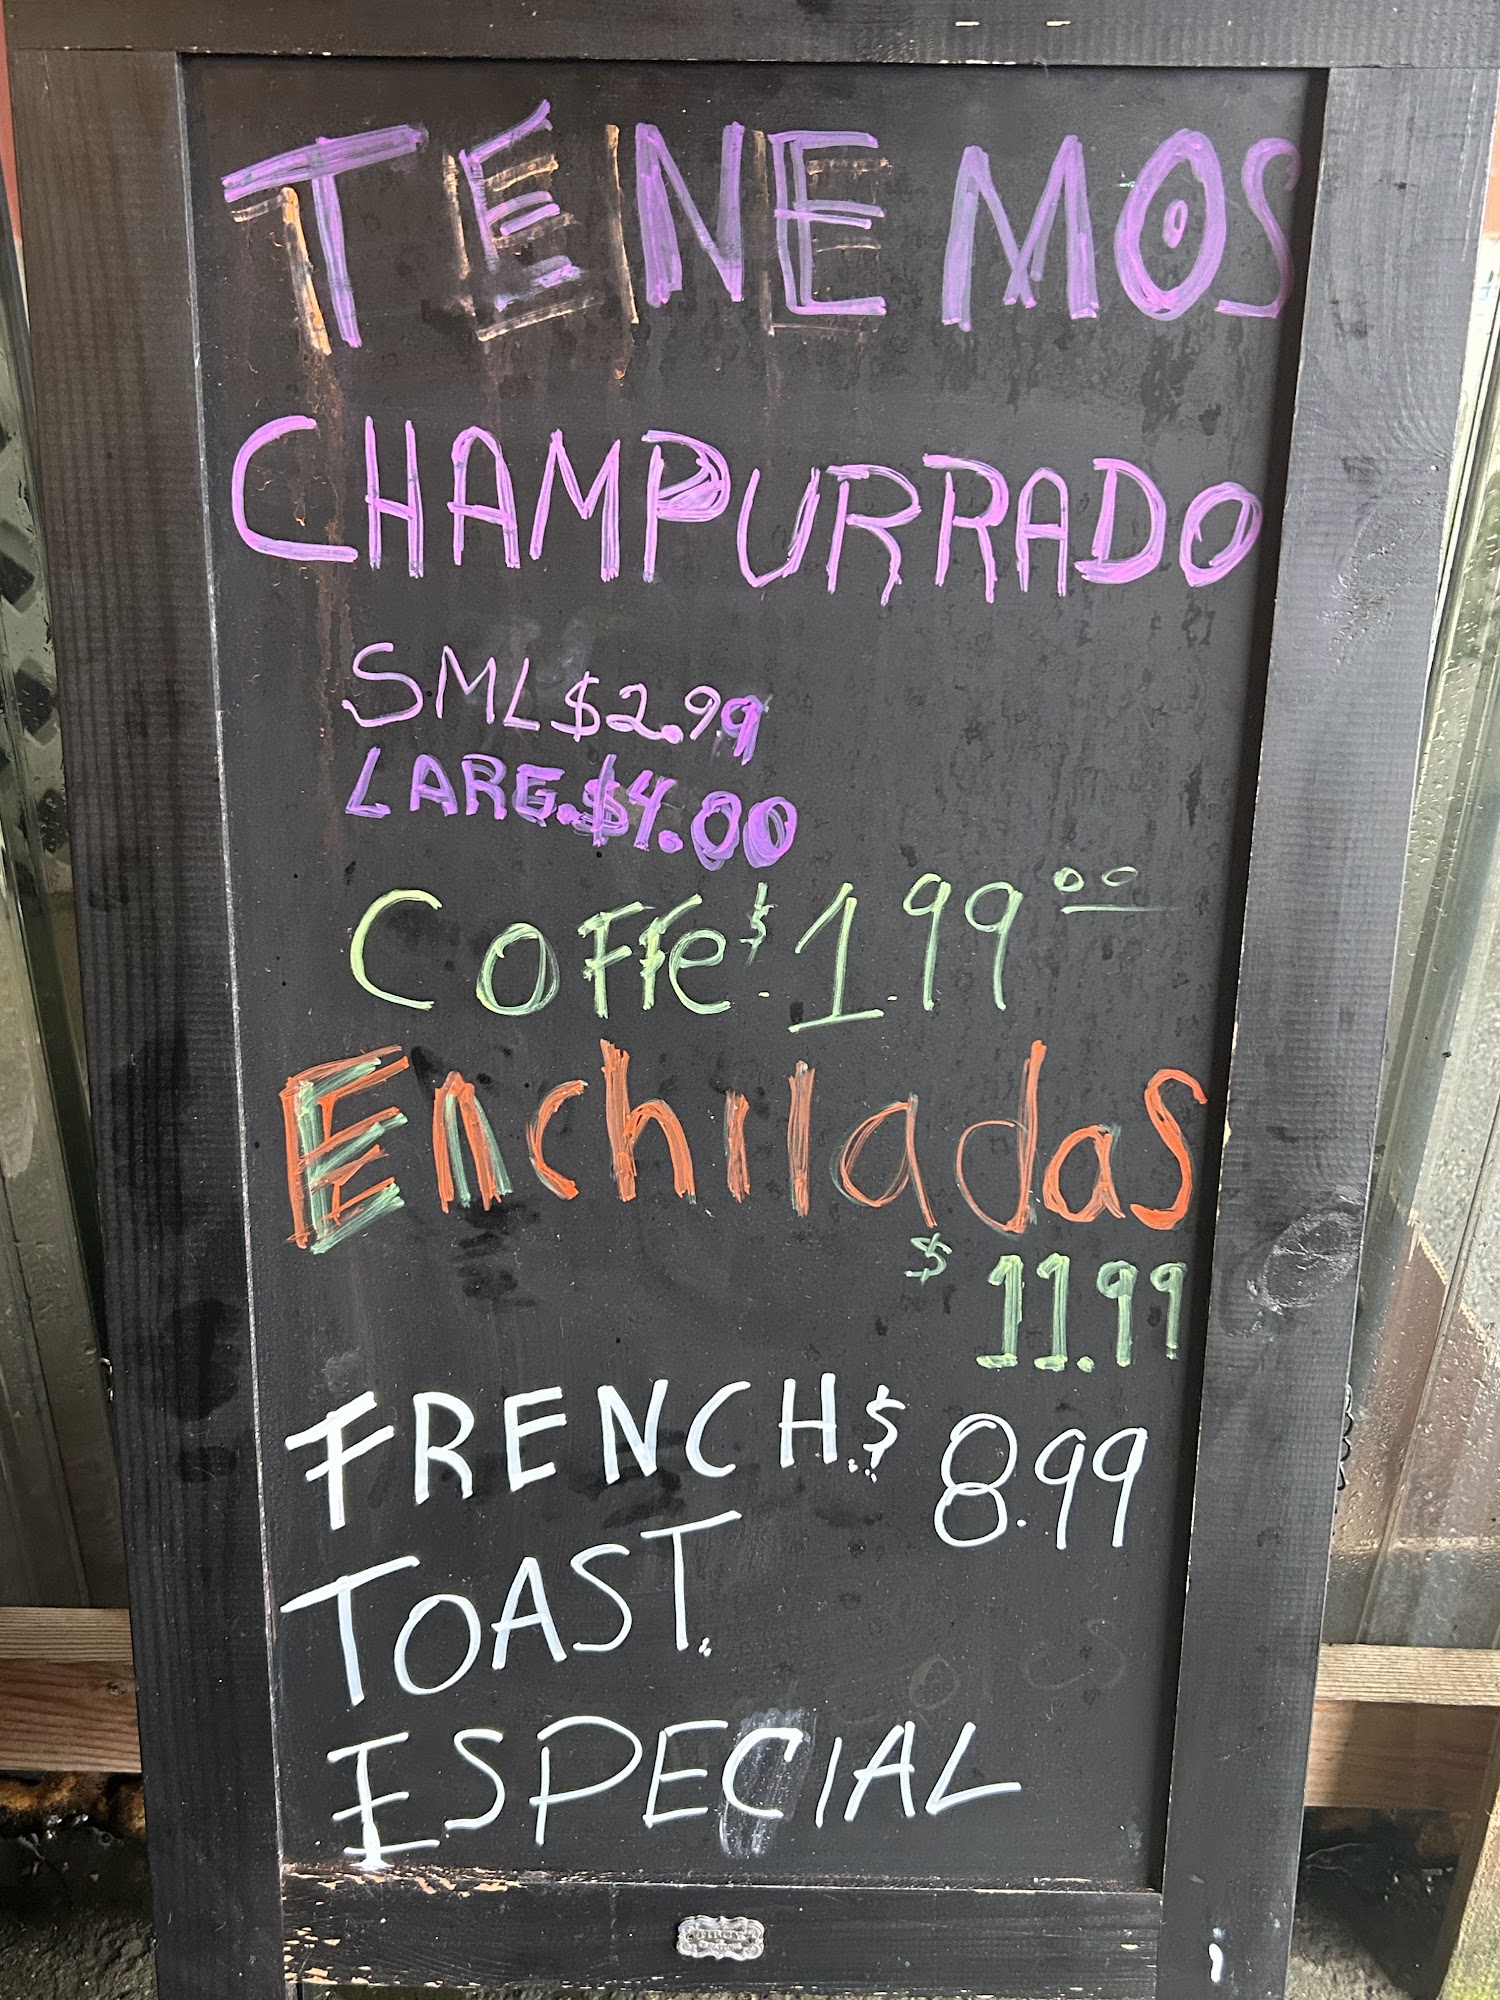 TENEMOS
CHAMPURRADO
SML $2.99
LARG. $4.00
COFFe $1.99 00
Enchiladas
$ 11.99
FRENCH $ 8.99
TOAST.
ESPECIAL